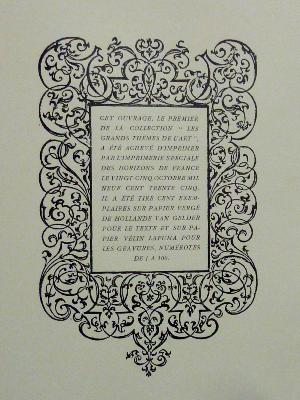 CET OUVRAGE, LE PREMIER
DE LA COLLECTION " LES
GRANDS THÈMES DE L'ART ",
A ÉTÉ ACHEVÉ D'IMPRIMER
PAR L'IMPRIMERIE SPÉCIALE
DES HORIZONS DE FRANCE
LE VINGT-CINQ OCTOBRE MIL
NEUF CENT TRENTE CINQ.
IL A ÉTÉ TIRÉ CENT EXEM-
PLAIRES SUR PAPIER VERGÉ
DE HOLLANDE VAN GELDER
POUR LE TEXTE ET SUR PA-
PIER VÉLIN LAFUMA POUR
LES GRAVURES, NUMÉROTÉS
DE 1 A 100.